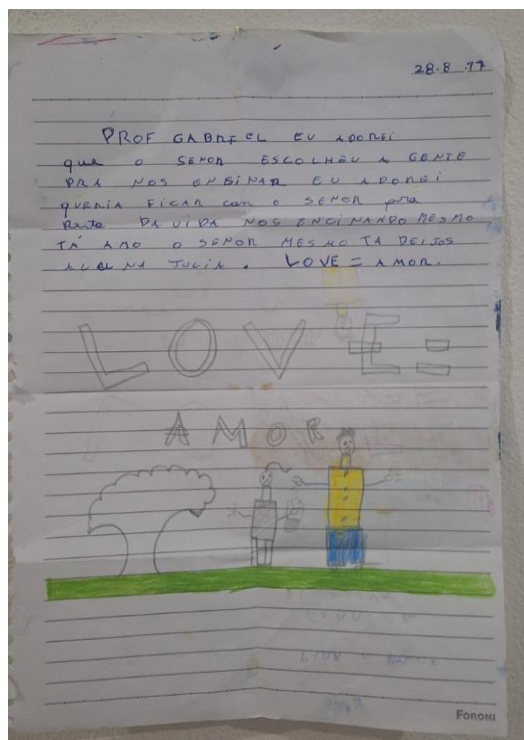 28.8.17
PROF GABRIEL EU ADOREI
que O SENOR ESCOLHEU A GENTE
PRA NOS ENSINAR EU ADOREI
QUERIA FICAR con O SENOR pra
Resto DA VIDA NOS ENCINANDO MESMO
TÁ AMO O SENOR MESMO TA BEIJOS
ALUNA JULIA. LOVE = AMOR.
LOVE =
AMOR
FORONI